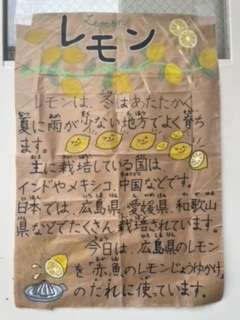 Lemon
レモン
レモンは、冬はあたたかく
夏に雨が少ない地方でよく育ち
ます。
主に栽培している国は
インドやメキシコ、中国などです。
日本では、広島県、愛媛県、和歌山
県などでたくさん栽培されています。
今日は、広島県のレモン
を"赤魚のレモンじょうゆかけ"
のたれに使っています。